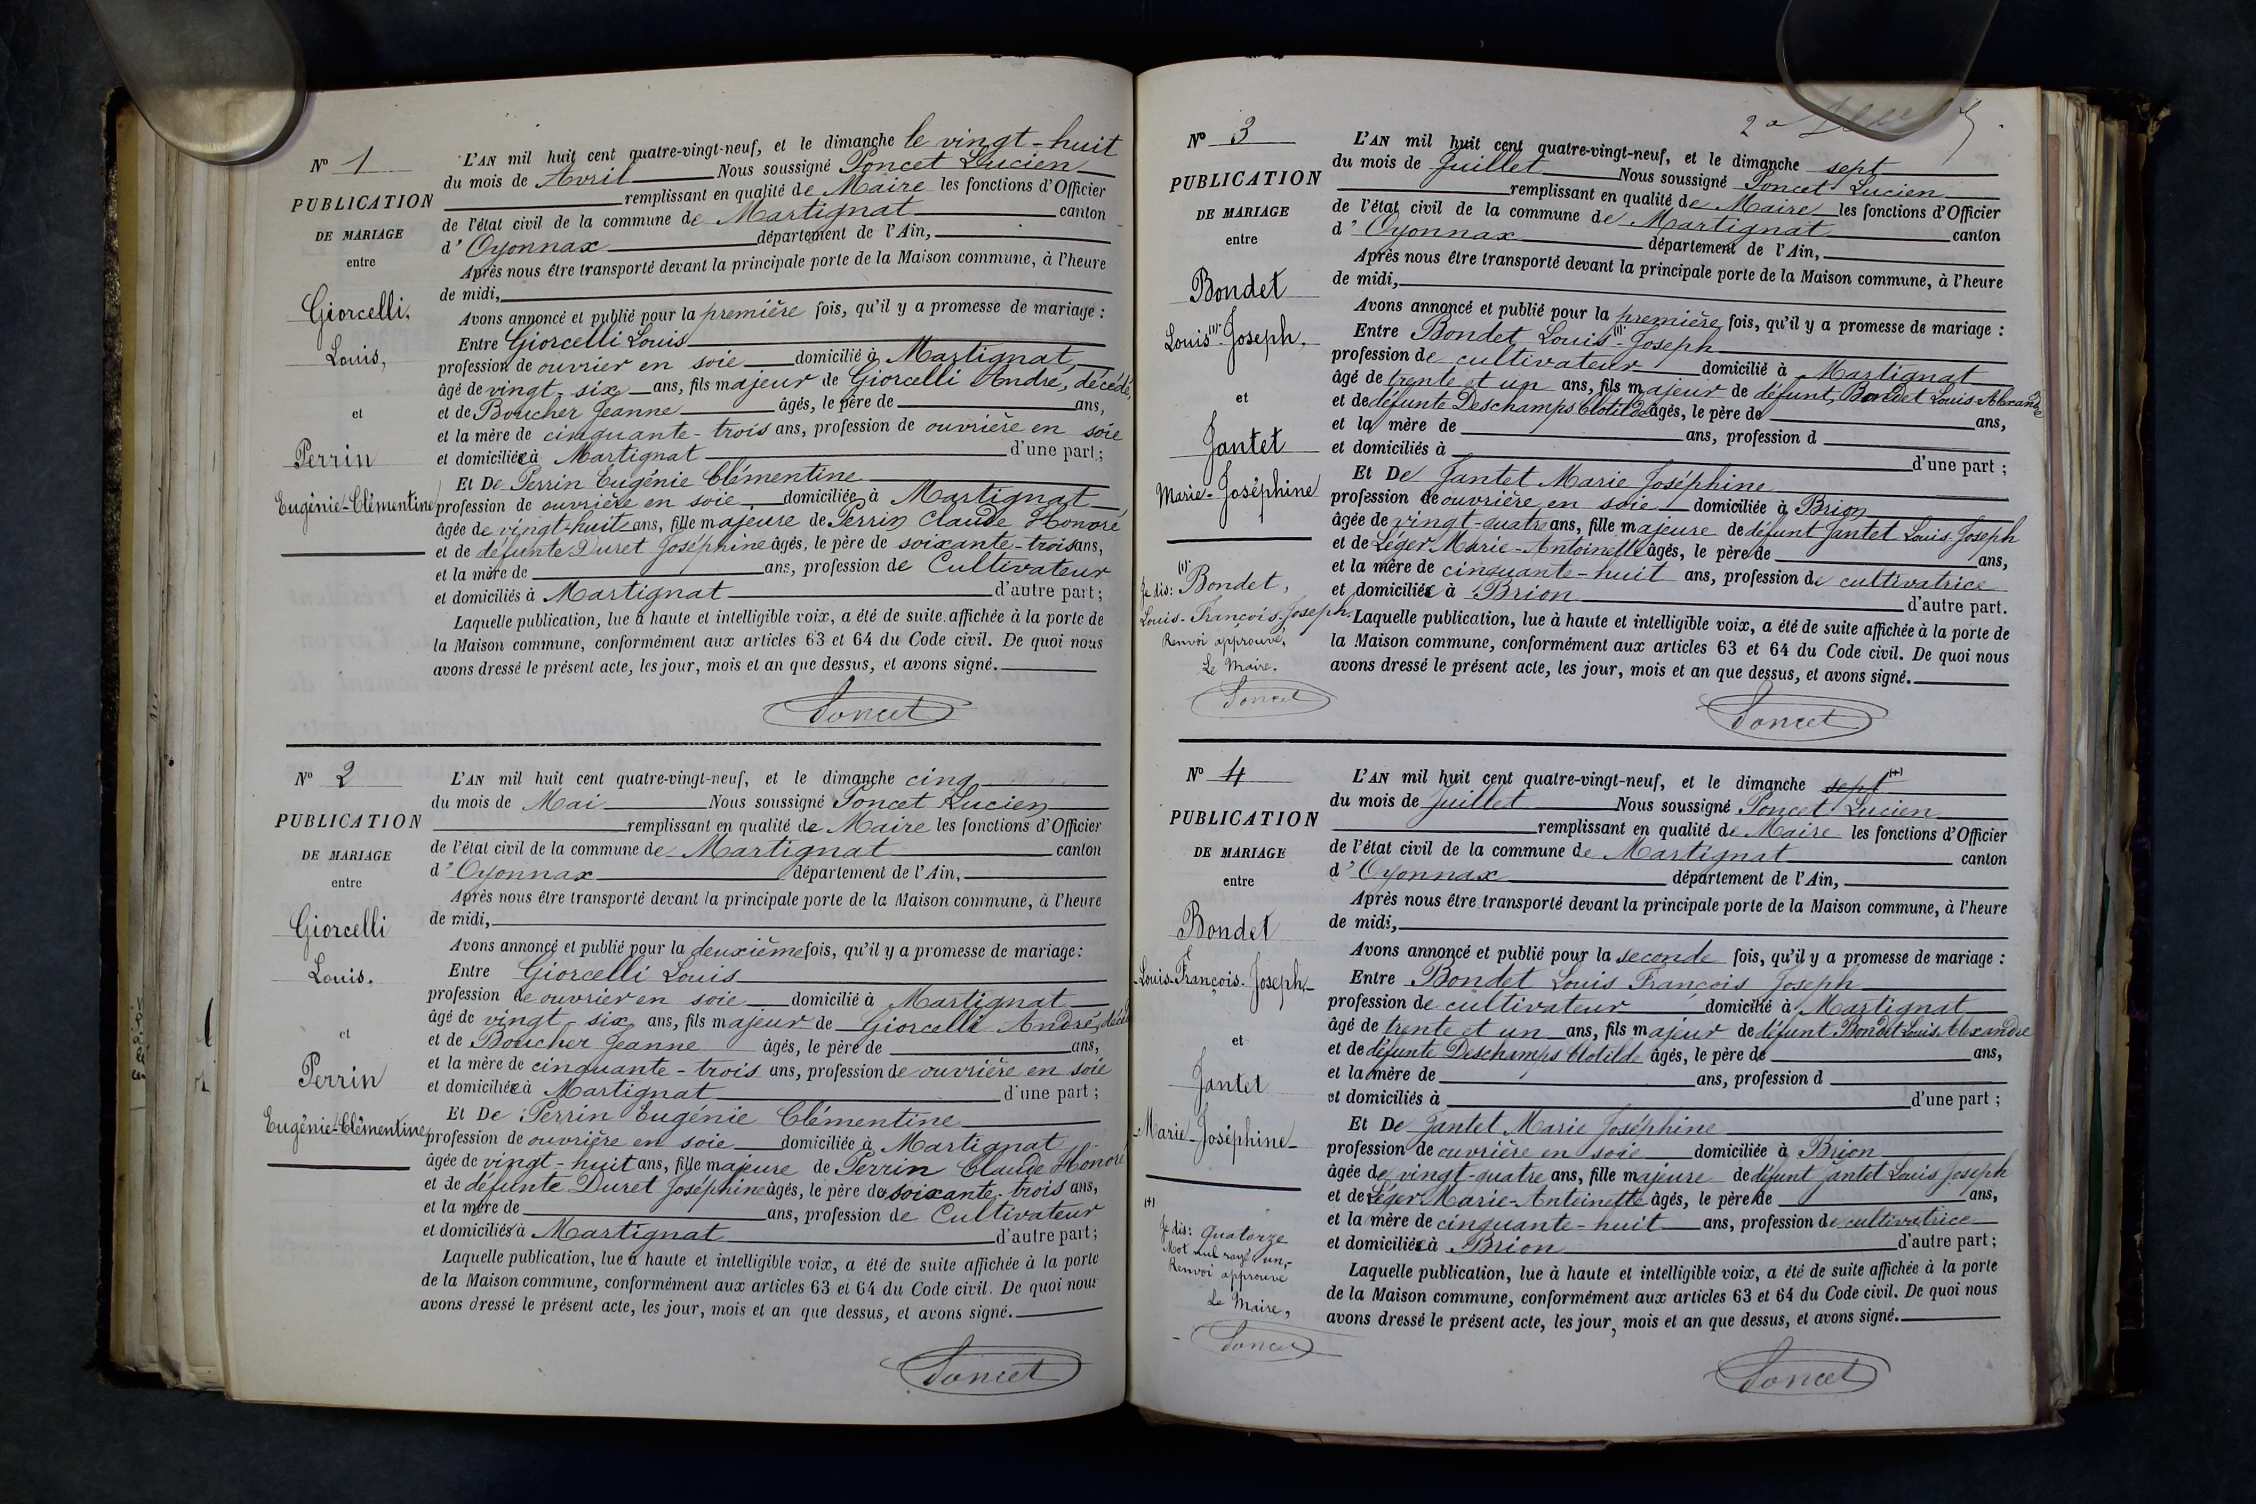 N° 1
PUBLICATION
DE MARIAGE
entre
Giorcelli,
Louis,
et
Perrin
Eugénie-Clémentine
L'AN mil huit cent quatre-vingt-neuf, et le dimanche le vingt-huit
du mois de Avril Nous soussigné Poncet Lucien
remplissant en qualité de Maire les fonctions d'Officier
de l'état civil de la commune de Martignat canton
d'Oyonnax département de l'Ain,
Après nous être transporté devant la principale porte de la Maison commune, à l'heure
de midi,
Avons annoncé et publié pour la première fois, qu'il y a promesse de mariage :
Entre Giorcelli Louis
profession de ouvrier en soie domicilié à Martignat
âgé de vingt-six ans, fils majeur de Giorcelli André, décédé,
et de Boucher Jeanne âgés, le père de ans,
et la mère de cinquante-trois ans, profession de ouvrière en soie
et domiciliée à Martignat d'une part ;
Et De Perrin Eugénie Clémentine
profession de ouvrière en soie domiciliée à Martignat
âgée de vingt-huit ans, fille majeure de Perrin Claude Honoré
et de défunte Duret Joséphine âgés, le père de soixante-trois ans,
et la mère de ans, profession de Cultivateur
et domiciliés à Martignat d'autre part ;
Laquelle publication, lue à haute et intelligible voix, a été de suite affichée à la porte de
la Maison commune, conformément aux articles 63 et 64 du Code civil. De quoi nous
avons dressé le présent acte, les jour, mois et an que dessus, et avons signé.
Poncet
N° 2
PUBLICATION
DE MARIAGE
entre
Giorcelli
Louis.
et
Perrin
Eugénie-Clémentine
L'AN mil huit cent quatre-vingt-neuf, et le dimanche cinq
du mois de Mai Nous soussigné Poncet Lucien
remplissant en qualité de Maire les fonctions d'Officier
de l'état civil de la commune de Martignat canton
d'Oyonnax département de l'Ain,
Après nous être transporté devant la principale porte de la Maison commune, à l'heure
de midi,
Avons annoncé et publié pour la deuxième fois, qu'il y a promesse de mariage :
Entre Giorcelli Louis
profession de ouvrier en soie domicilié à Martignat
âgé de vingt-six ans, fils majeur de Giorcelli André,
et de Boucher Jeanne âgés, le père de ans,
et la mère de cinquante-trois ans, profession de ouvrière en soie
et domiciliée à Martignat d'une part ;
Et De Perrin Eugénie Clémentine
profession de ouvrière en soie domiciliée à Martignat
âgée de vingt-huit ans, fille majeure de Perrin Claude Honoré
et de défunte Duret Joséphine âgés, le père de soixante-trois ans,
et la mère de ans, profession de Cultivateur
et domiciliés à Martignat d'autre part ;
Laquelle publication, lue à haute et intelligible voix, a été de suite affichée à la porte
de la Maison commune, conformément aux articles 63 et 64 du Code civil. De quoi nous
avons dressé le présent acte, les jour, mois et an que dessus, et avons signé.
Poncet
N° 3
PUBLICATION
DE MARIAGE
entre
Bondet
Louis (1) Joseph.
et
Jantet
Marie-Joséphine
(1)
Je dis : Bondet,
Louis-François-Joseph.
Renvoi approuvé,
Le Maire.
Poncet
L'AN mil huit cent quatre-vingt-neuf, et le dimanche sept
du mois de Juillet Nous soussigné Poncet Lucien
remplissant en qualité de Maire les fonctions d'Officier
de l'état civil de la commune de Martignat canton
d'Oyonnax département de l'Ain,
Après nous être transporté devant la principale porte de la Maison commune, à l'heure
de midi,
Avons annoncé et publié pour la première fois, qu'il y a promesse de mariage :
Entre Bondet Louis (1) Joseph
profession de cultivateur domicilié à Martignat
âgé de trente et un ans, fils majeur de défunt, Bondet Louis Alexandre
et de défunte Deschamps Clotilde âgés, le père de ans,
et la mère de ans, profession d
et domiciliés à d'une part ;
Et De Jantet Marie Joséphine
profession de ouvrière en soie domiciliée à Brion
âgée de vingt-quatre ans, fille majeure de défunt Jantet Louis Joseph
et de Léger Marie-Antoinette âgés, le père de ans,
et la mère de cinquante-huit ans, profession de cultivatrice
et domiciliée à Brion d'autre part.
Laquelle publication, lue à haute et intelligible voix, a été de suite affichée à la porte de
la Maison commune, conformément aux articles 63 et 64 du Code civil. De quoi nous
avons dressé le présent acte, les jour, mois et an que dessus, et avons signé.
Poncet
N° 4
PUBLICATION
DE MARIAGE
entre
Bondet
Louis-François-Joseph
et
Jantet
Marie-Joséphine
(+)
Je dis : quatorze
Mot nul rayé un,
Renvoi approuvé
Le Maire,
Poncet
L'AN mil huit cent quatre-vingt-neuf, et le dimanche sept (+)
du mois de Juillet Nous soussigné Poncet Lucien
remplissant en qualité de Maire les fonctions d'Officier
de l'état civil de la commune de Martignat canton
d'Oyonnax département de l'Ain,
Après nous être transporté devant la principale porte de la Maison commune, à l'heure
de midi,
Avons annoncé et publié pour la seconde fois, qu'il y a promesse de mariage :
Entre Bondet Louis François Joseph
profession de cultivateur domicilié à Martignat
âgé de trente et un ans, fils majeur de défunt Bondet Louis Alexandre
et de défunte Deschamps Clotilde âgés, le père de ans,
et la mère de ans, profession d
et domiciliés à d'une part ;
Et De Jantet Marie Joséphine
profession de ouvrière en soie domiciliée à Brion
âgée de vingt-quatre ans, fille majeure de défunt Jantet Louis Joseph
et de Léger Marie-Antoinette âgés, le père de ans,
et la mère de cinquante-huit ans, profession de cultivatrice
et domiciliée à Brion d'autre part ;
Laquelle publication, lue à haute et intelligible voix, a été de suite affichée à la porte
de la Maison commune, conformément aux articles 63 et 64 du Code civil. De quoi nous
avons dressé le présent acte, les jour, mois et an que dessus, et avons signé.
Poncet